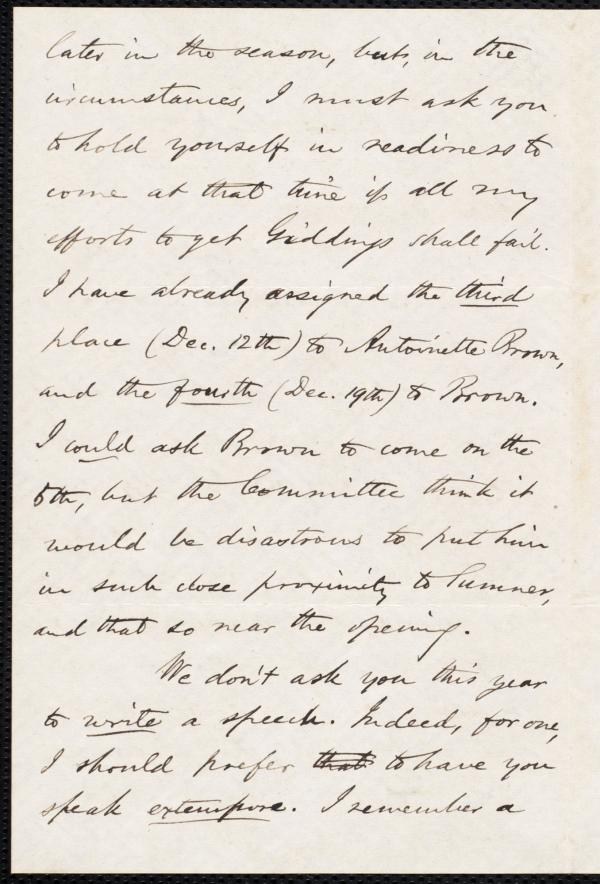 later in the season, but, in the
circumstances, I must ask you
to hold yourself in readiness to
come at that time if all my
efforts to get Giddings shall fail.
I have already assigned the third
place (Dec. 12th) to Antoinette Brown,
and the fourth (Dec. 19th) to Brown.
I could ask Brown to come on the
5th, but the Committee think it
would be disastrous to put him
in such close proximity to Sumner,
and that so near the opening.
We don't ask you this year
to write a speech. Indeed, for one,
I should prefer that to have you
speak extempore. I remember a